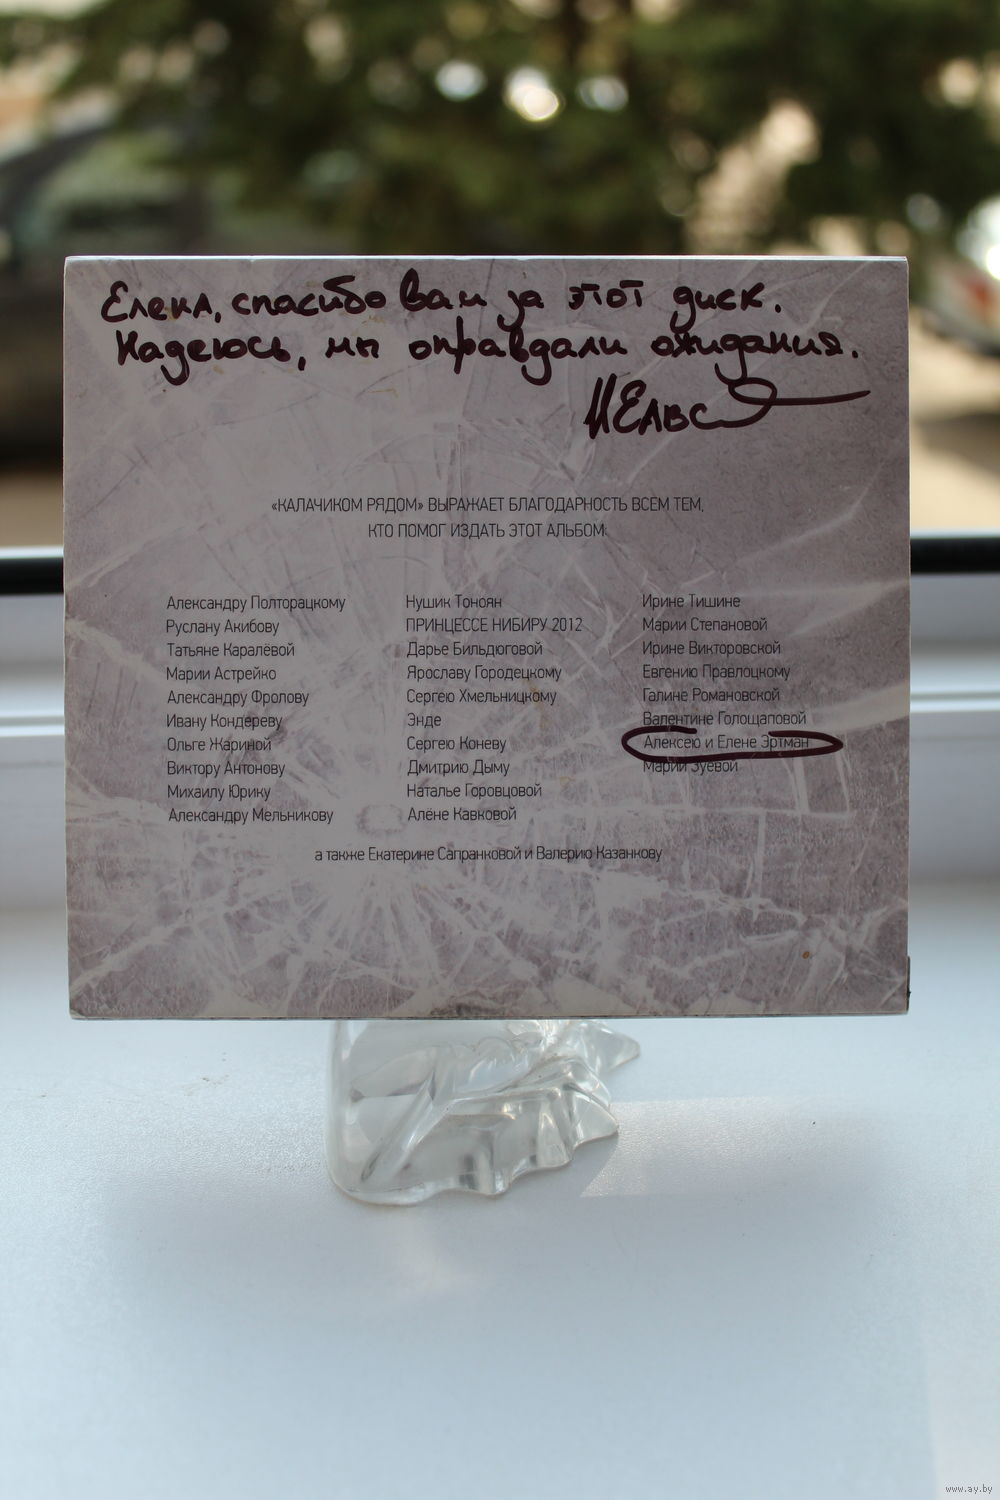 Елена, спасибо вам за этот диск.
Надеюсь, мы оправдали ожидания.
«КАЛАЧИКОМ РЯДОМ» ВЫРАЖАЕТ БЛАГОДАРНОСТЬ ВСЕМ ТЕМ,
КТО ПОМОГ ИЗДАТЬ ЭТОТ АЛЬБОМ:
Александру Полторацкому
Руслану Акибову
Татьяне Каралёвой
Марии Астрейко
Александру Фролову
Ивану Кондереву
Ольге Жариной
Виктору Антонову
Михаилу Юрику
Александру Мельникову
Нушик Тоноян
ПРИНЦЕССЕ НИБИРУ 2012
Дарье Бильдюговой
Ярославу Городецкому
Сергею Хмельницкому
Энде
Сергею Коневу
Дмитрию Дыму
Наталье Горовцовой
Алёне Кавковой
Ирине Тишине
Марии Степановой
Ирине Викторовской
Евгению Правлоцкому
Галине Романовской
Валентине Голощаповой
Алексею и Елене Эртман
Марии Зуевой
а также Екатерине Сапранковой и Валерию Казанкову
www.ay.by